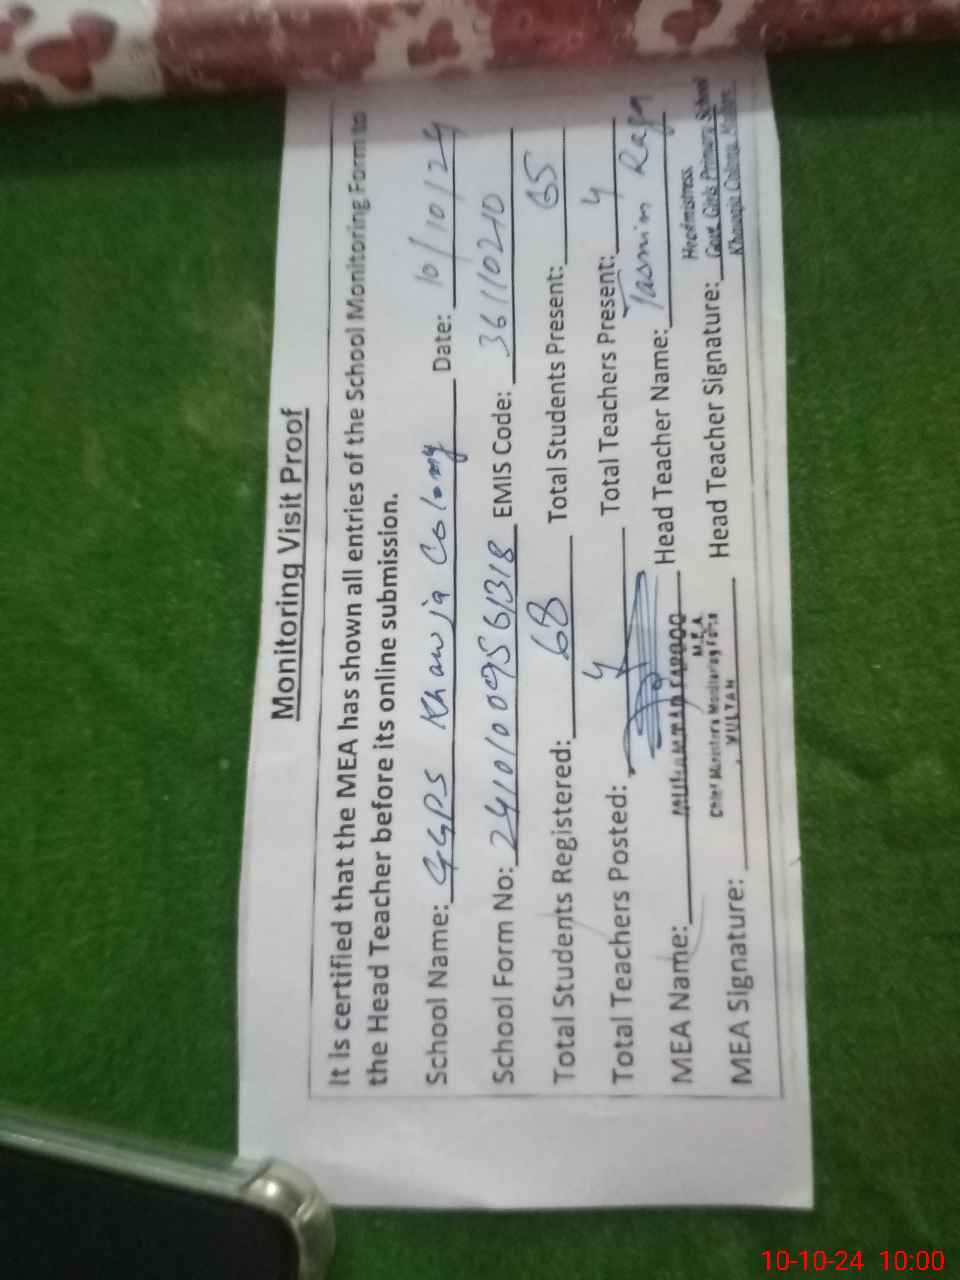 Monitoring Visit Proof
It is certified that the MEA has shown all entries of the School Monitoring Form to
the Head Teacher before its online submission.
School Name: GGPS Khawja Colony Date: 10/10/24
School Form No: 24101009561318 EMIS Code: 36110210
Total Students Registered: 68 Total Students Present: 65
Total Teachers Posted: 4 Total Teachers Present: 4
MEA Name: MUHAMMAD FAROOQ Head Teacher Name: Tasnim
M.E.A
Chief Minister's Monitoring Force
MULTAN
MEA Signature: Head Teacher Signature:
Headmistress
Govt. Girls Primary School
Khawaja Colony, Multan.
10-10-24 10:00